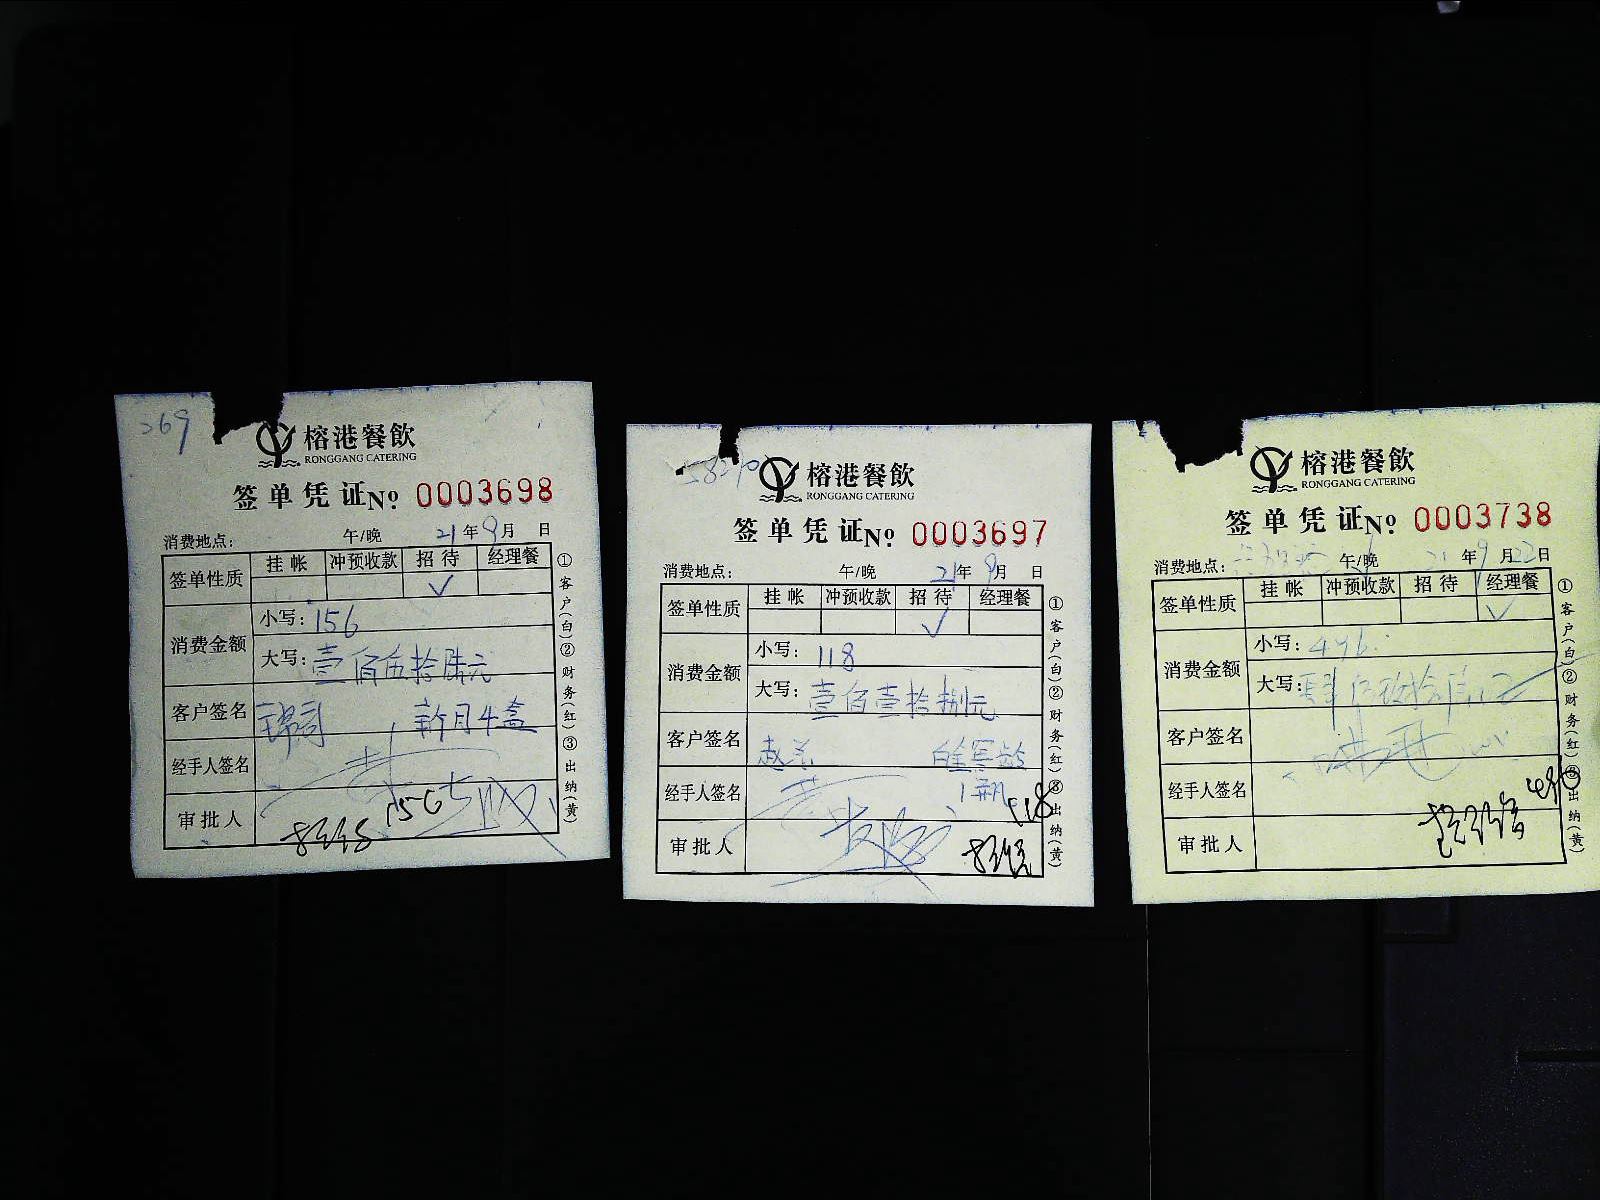 369
榕港餐飲
RONGGANG CATERING
签单凭证No 0003698
消费地点: 午/晚 21年9月 日
签单性质 挂帐 冲预收款 招待 经理餐
✓
消费金额 小写: 156
大写: 壹佰伍拾陆元
客户签名 新月4盒
经手人签名
审批人 156
①客户(白)②财务(红)③出纳(黄)
榕港餐飲
RONGGANG CATERING
签单凭证No 0003697
消费地点: 午/晚 21年9月 日
签单性质 挂帐 冲预收款 招待 经理餐
✓
消费金额 小写: 118
大写: 壹佰壹拾捌元
客户签名
经手人签名 1瓶 118
审批人
①客户(白)②财务(红)③出纳(黄)
榕港餐飲
RONGGANG CATERING
签单凭证No 0003738
消费地点: 午/晚 21年9月22日
签单性质 挂帐 冲预收款 招待 经理餐
✓
消费金额 小写: 496
大写:
客户签名
经手人签名
审批人
①客户(白)②财务(红)③出纳(黄)